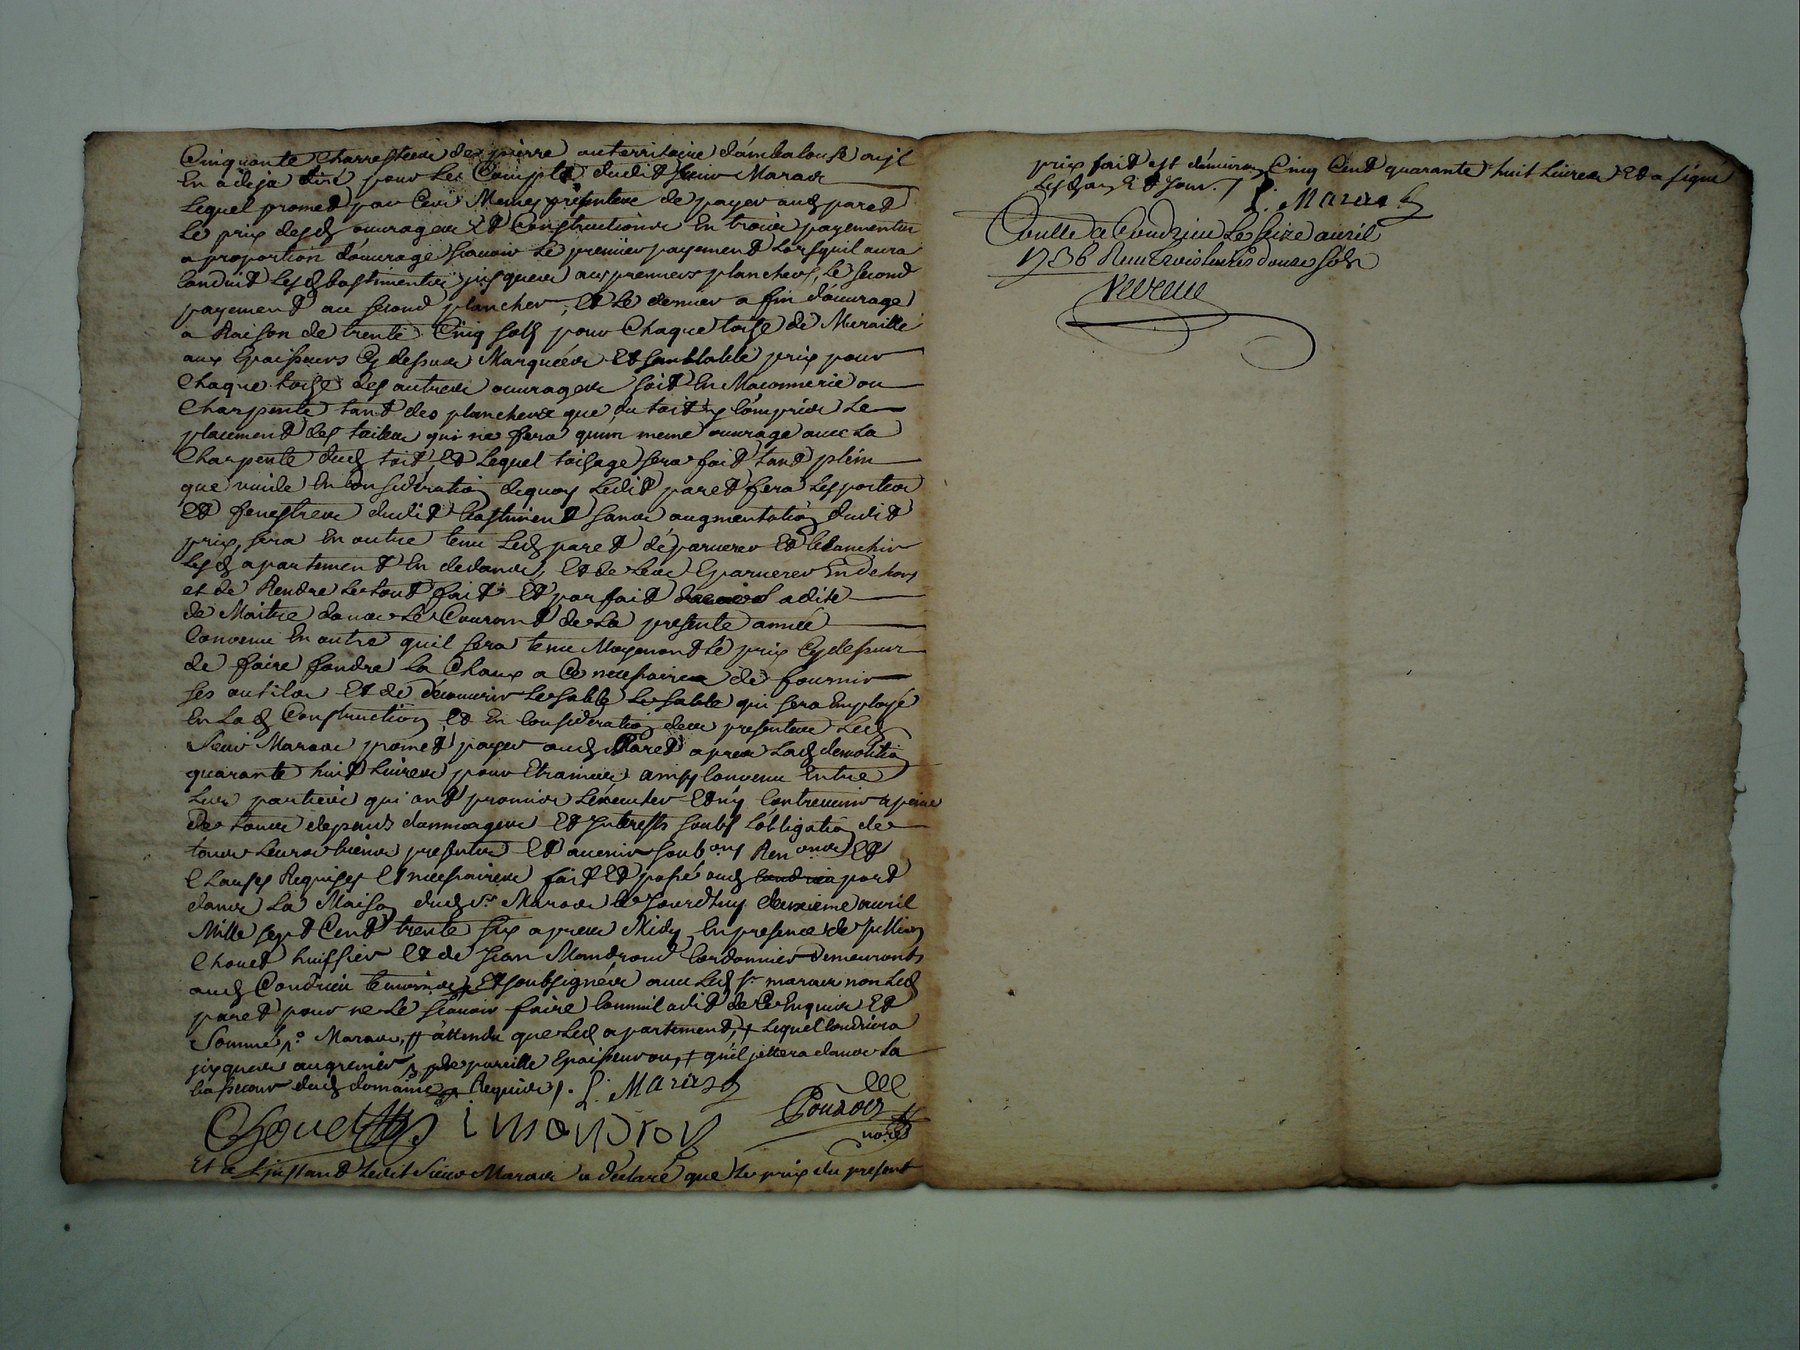 Cinquante Charrestees de pierre au territoire d'ambalouse ou jl
En a deja tiré pour Le Compte dudit Sieur Maras
Lequel promet par Ces Memes presentes de payer aud paret
Le prix desd ouvrages Et Constructions En trois payements
a proportion d'ouvrage Scavoir Le premier payement Lorsquil aura
Conduit Lesd bastiments jusques aux premiers planchers, Le second
payement au second plancher, Et Le dernier a fin d'ouvrage
a Raison de trente Cinq sols pour Chaque toise de Muraille
aux Epaisseurs Cy dessus Marquées Et semblable prix pour
Chaque toise des autres ouvrages soit En Maconnerie ou
Charpente tant des planchers que du toit y Compris Le
placement des tuiles qui ne fera qu'un meme ouvrage avec La
Charpente dud toit, Et Lequel toisage sera fait tant plein
que vuide En Consideration dequoy Ledit paret fera Les portes
Et fenestres dudit bastiment sans augmentation dudit
prix, sera En outre tenu Led paret d'eparverer Et blanchir
Lesd apartement En dedans, Et de Les Eparverer En dehors
et de Rendre Le tout fait Et parfait a dite
de Maitre dans Le Courant de La presente année
Convenu En outre quil sera tenu Moyenant Le prix Cy dessus
de faire fondre La Chaux a Ce necessaire de fournir
ses outils Et de decouvrir Le sable Le sable qui sera Employé
En Lad Construction Et En Consideration des presentes Led
Sieur Maras promet payer aud Paret apres Lad demolition
quarante huit Livres pour Etraines ainsy Convenu Entre
Les parties qui ont promis L'executer Et n'y Contrevenir a peine
de tous depends dommages Et Jnterests soubs L'obligation de
tous Leurs biens presents Et avenir soub ons Ren ons Et
Clauses Requises Et necessaires fait Et passé aud Condrieu part
dans La Maison dud Sr Maras Le Jourdhuy deuxieme avril
Mille sept Cent trente six apres Midy En presence de Jullien
Chouet huissier Et de Jean Mandrond Cordonnier demeurants
aud Condrieu temoins Et soubsignés avec Led Sr maras non Led
paret pour ne Le Scavoir faire Comm'il a dit de Ce Enquis Et
Sommé Sr Maras, # attendu que Led apartement, + Lequel Conduira
jusques au grenier de pareille Epaisseur ou, + qu'il jettera dans La
basse cour dud domaine Requis. J. Maras
Chouet i mandron Pouzols
nore
Et a L'jnstant Ledit Sieur Maras a déclaré que Le prix du present
prix fait est d'environ Cinq Cent quarante huit Livres Et a signé
Lesd an Et Jour. J. Maras
Conllé a Condrieu Le seize avril
1736 Reçu trois livres douze sols